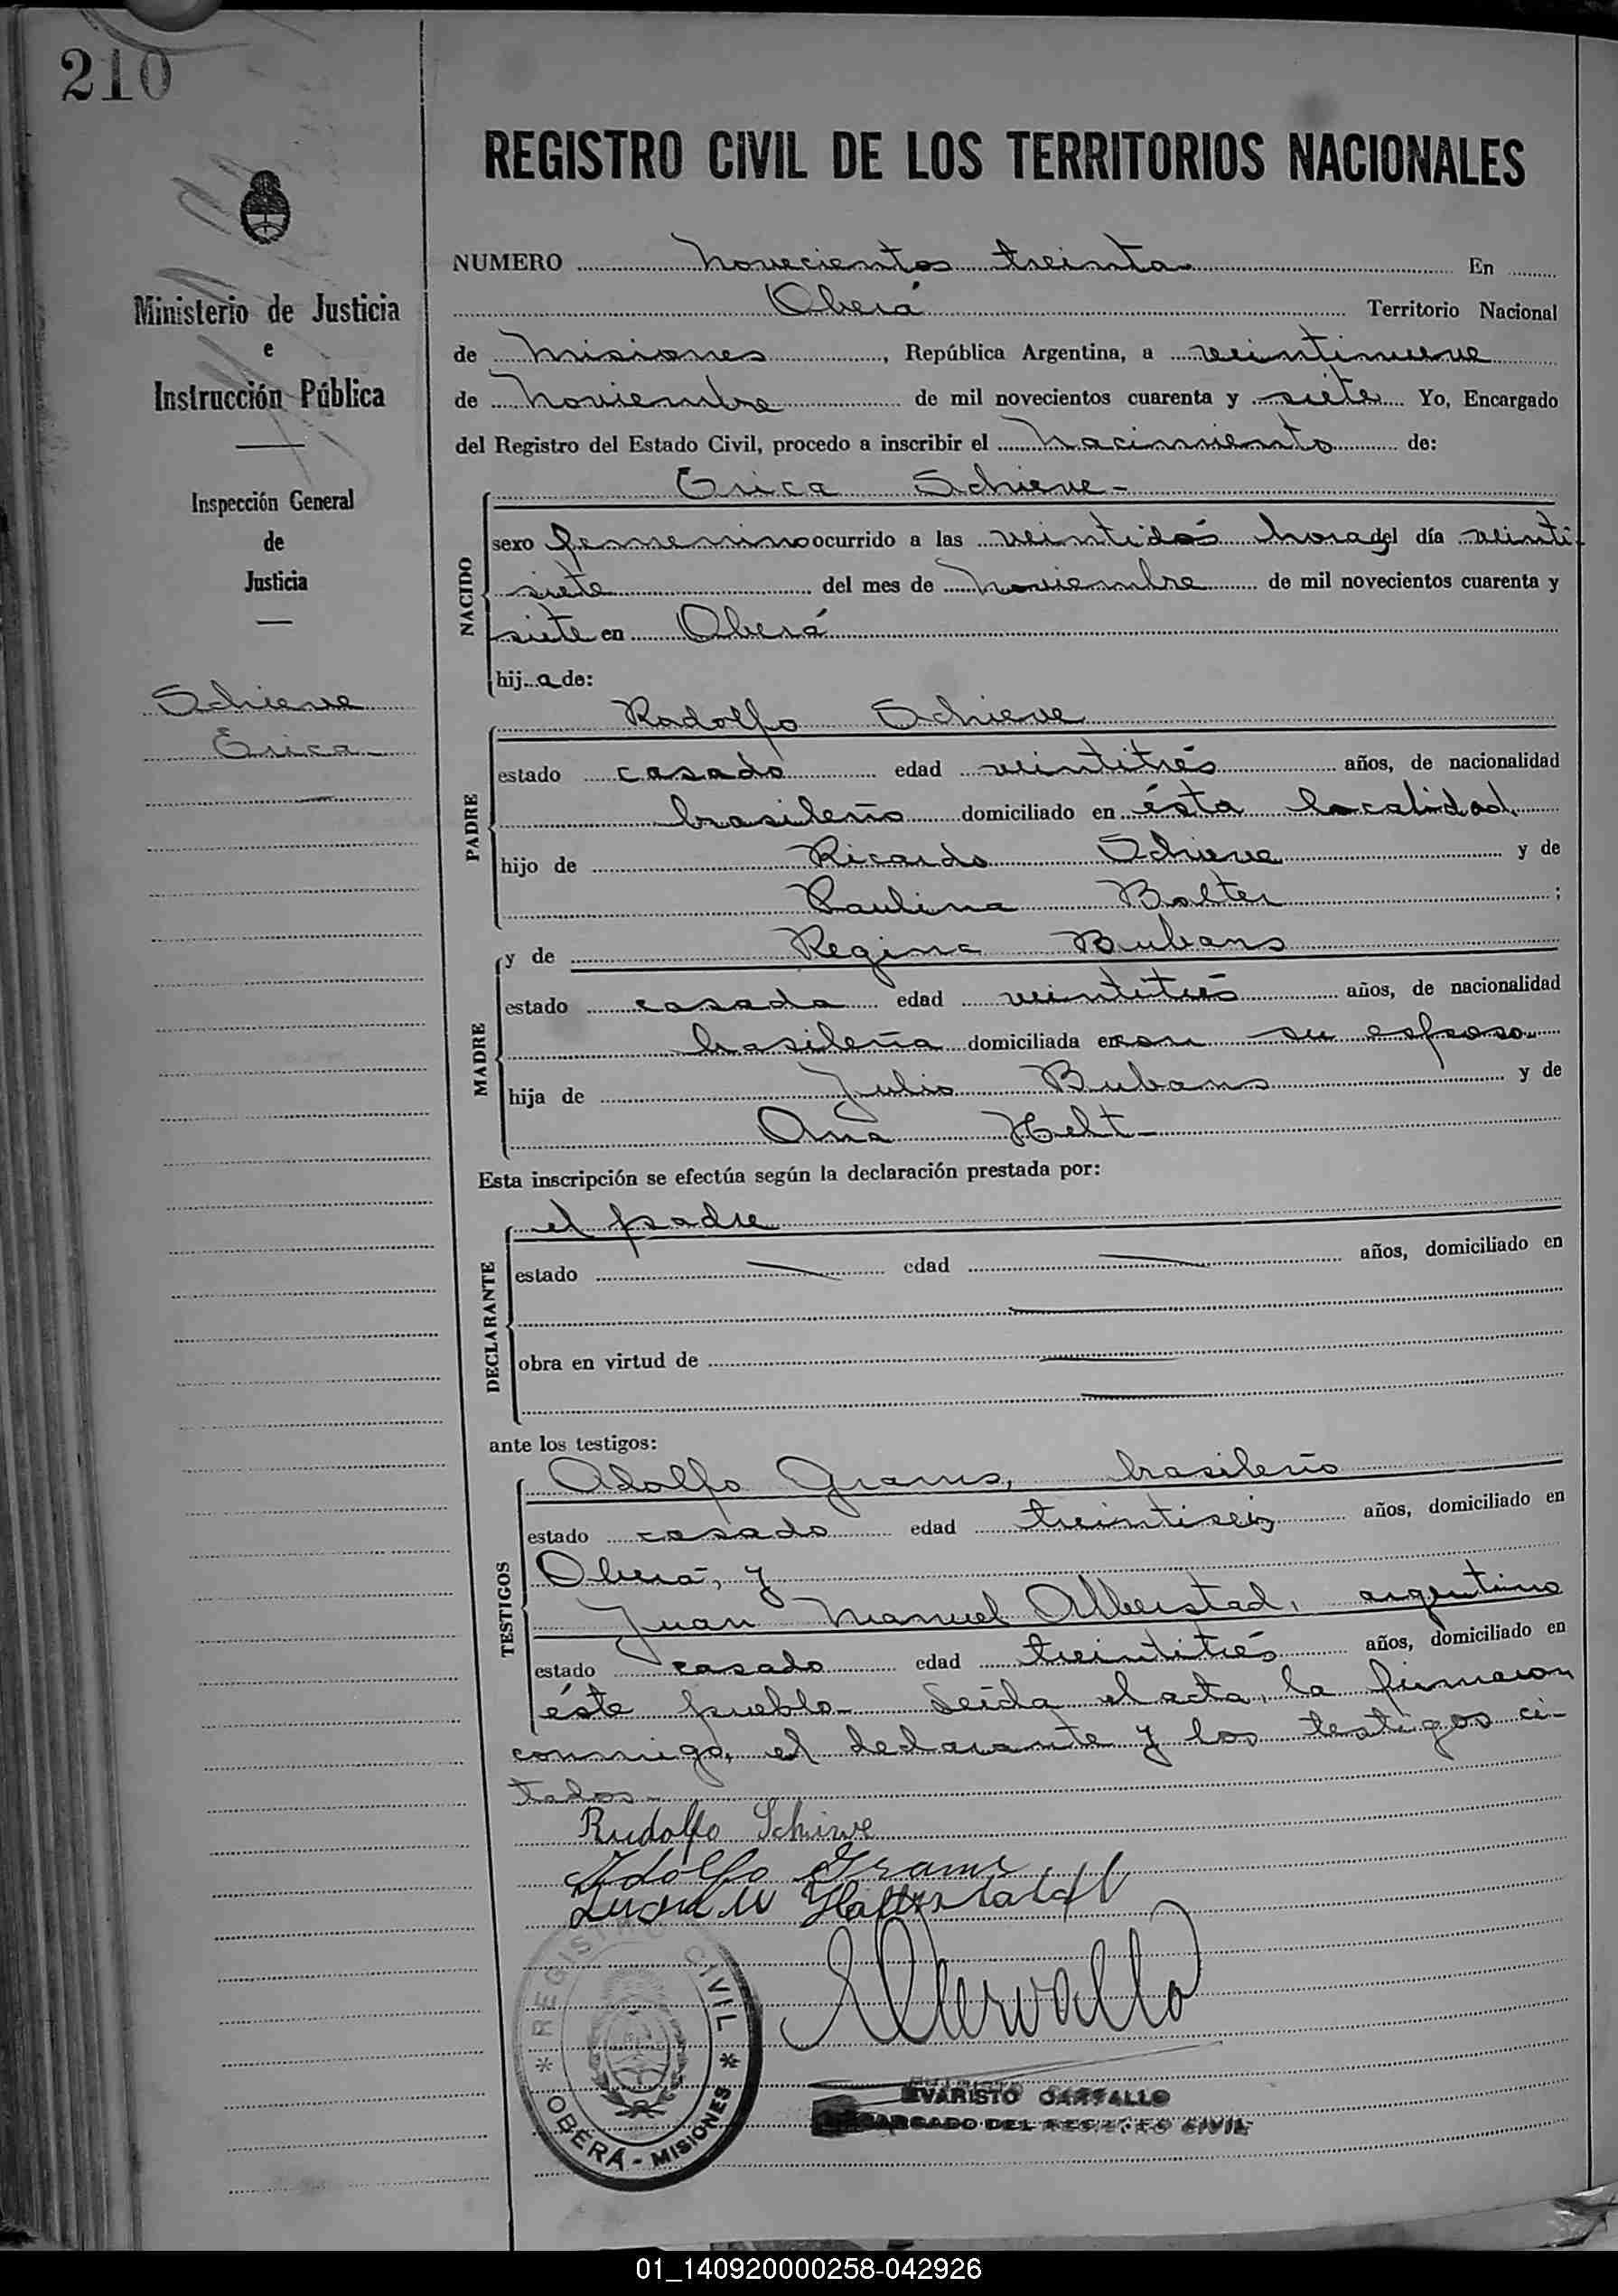 210
REGISTRO CIVIL DE LOS TERRITORIOS NACIONALES
Ministerio de Justicia
e
Instrucción Pública
Inspección General
de
Justicia
Schieve
Erica
NUMERO novecientos treinta En
Oberá Territorio Nacional
de Misiones, República Argentina, a veintinueve
de Noviembre de mil novecientos cuarenta y siete Yo, Encargado
del Registro del Estado Civil, procedo a inscribir el nacimiento de:
NACIDO
Erica Schieve-
sexo femenino ocurrido a las veintidós horas del día veinti
siete del mes de noviembre de mil novecientos cuarenta y
siete en Oberá
hija de:
PADRE
Rodolfo Schieve
estado casado edad veintitrés años, de nacionalidad
brasileño domiciliado en ésta localidad
hijo de Ricardo Schieve y de
Paulina Bolter ;
MADRE
y de Regina Bubans
estado casada edad veintitrés años, de nacionalidad
brasileña domiciliada en con su esposo
hija de Julio Bubans y de
Ana Helt-
Esta inscripción se efectúa según la declaración prestada por:
DECLARANTE
el padre
estado edad años, domiciliado en
obra en virtud de
ante los testigos:
TESTIGOS
Adolfo Grams, brasileño
estado casado edad treintiseis años, domiciliado en
Oberá, y
Juan Manuel Alberstad, argentino
estado casado edad treintitrés años, domiciliado en
éste pueblo- Leída el acta, la firmaron
conmigo, el declarante y los testigos ci-
tados-
Rudolfo Schiwe
Adolfo Grams
Juan M
REGISTRO CIVIL
* OBERÁ - MISIONES *
EVARISTO CARVALLO
ENCARGADO DEL REGISTRO CIVIL
01_140920000258-042926